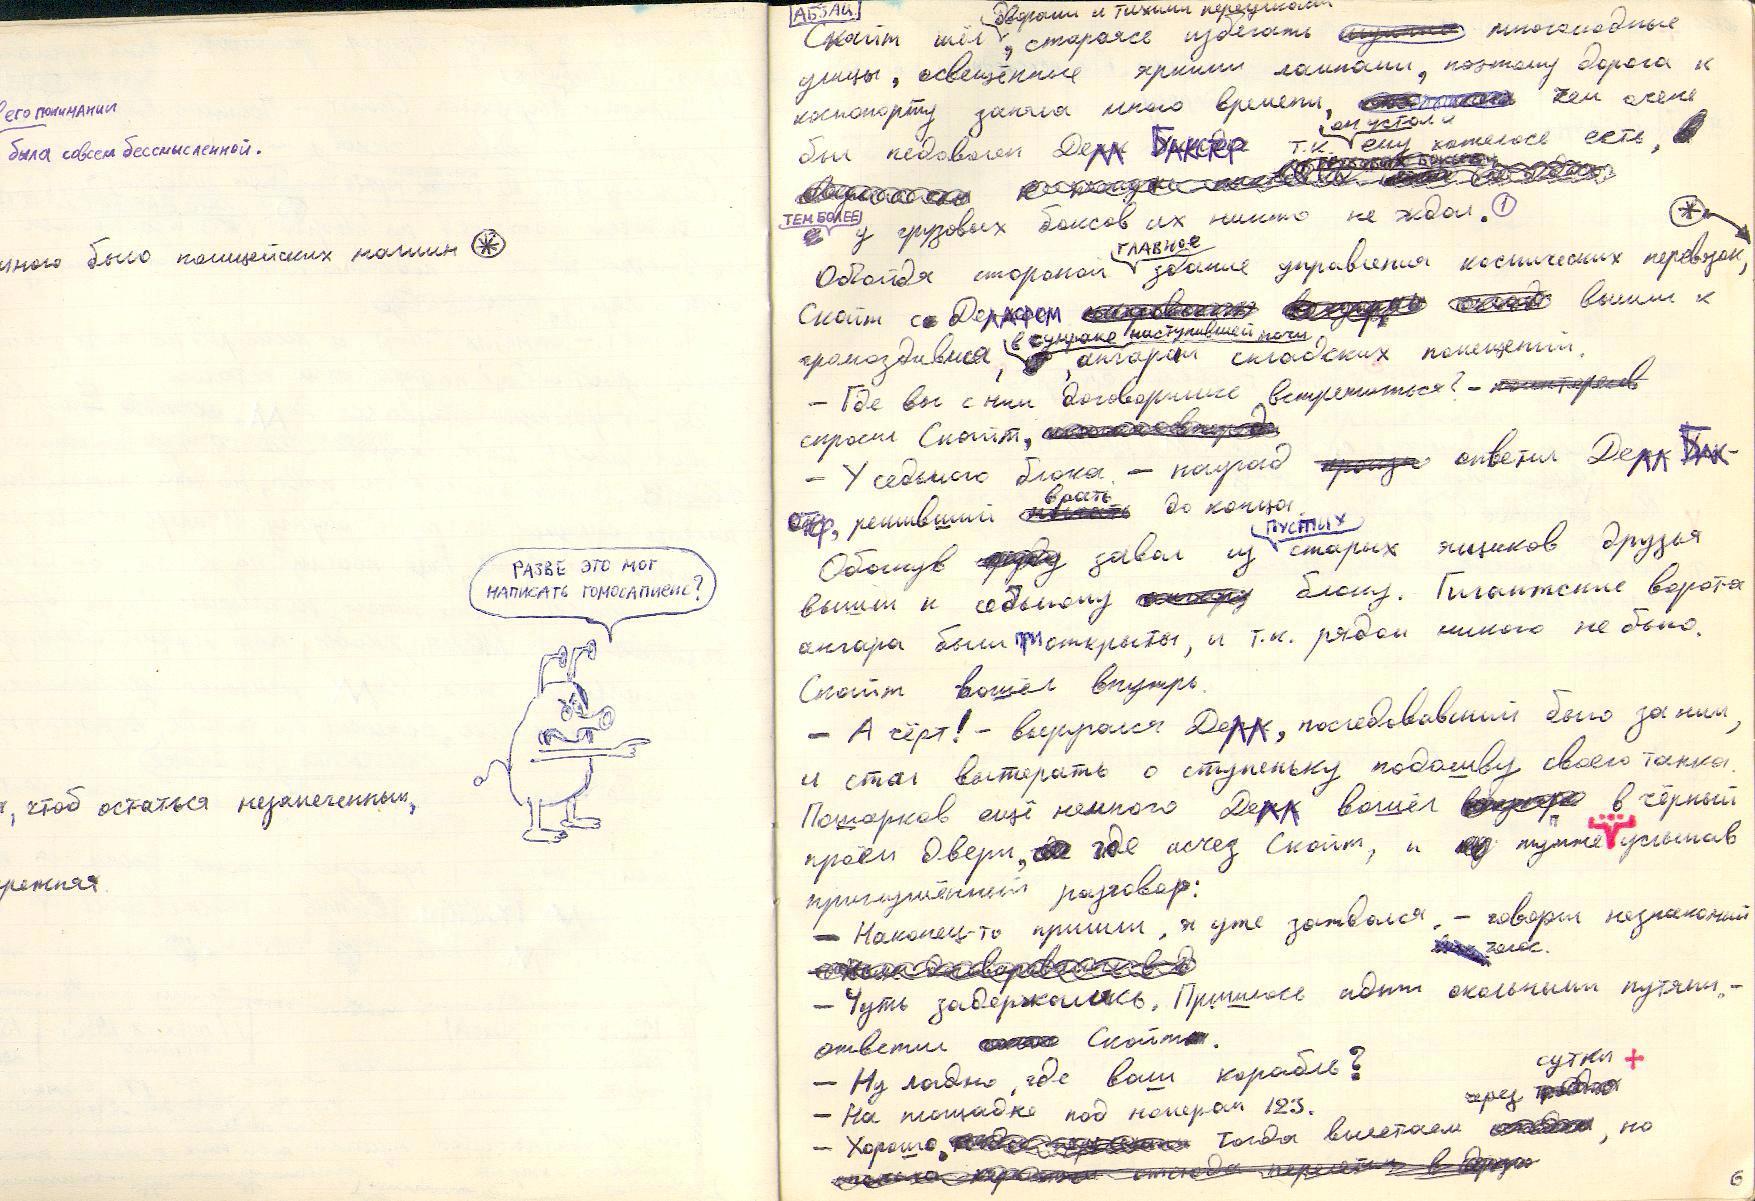 в его понимании
была совсем бессмысленной.
много было полицейских машин *
РАЗВЕ ЭТО МОГ
НАПИСАТЬ ГОМОСАПИЕНС?
, чтоб остаться незамеченным,
АБЗАЦ
дворами и тихими переулками
Скайт шёл, стараясь избегать многолюдные
улицы, освещённые яркими лампами, поэтому дорога к
космопорту заняла много времени, чем очень
он устал и
был недоволен Делл Бакстер т.к. ему хотелось есть,
ТЕМ БОЛЕЕ
у грузовых боксов их никто не ждал. 1
*
ГЛАВНОЕ
Обойдя стороной здание управления космических перевозок,
Скайт с Деллом вышли к
в сумраке наступившей ночи
громоздившимся, ангарам складских помещений.
– Где вы с ним договорились встретиться? –
спросил Скайт,
– У седьмого блока. – наугад ответил Делл Бак-
врать
стер, решивший до конца.
ПУСТЫХ
Обогнув завал из старых ящиков друзья
вышли к седьмому блоку. Гигантские ворота
ангара были открыты, и т.к. рядом никого не было.
Скайт вошёл внутрь.
– А чёрт! – выругался Делл, последовавший было за ним,
и стал вытирать о ступеньку подошву своего
Пошаркав ещё немного Делл вошёл в чёрный
проём двери, где исчез Скайт, и тут же услышав
приглушённый разговор:
– Наконец-то пришли, я уже заждался. – говорил незнакомый
голос.
– Чуть задержались. Пришлось идти окольными путями. –
ответил Скайт.
– Ну ладно, где ваш корабль?
– На площадке под номером 123.
сутки +
через
– Хорошо, тогда вылетаем , но
6